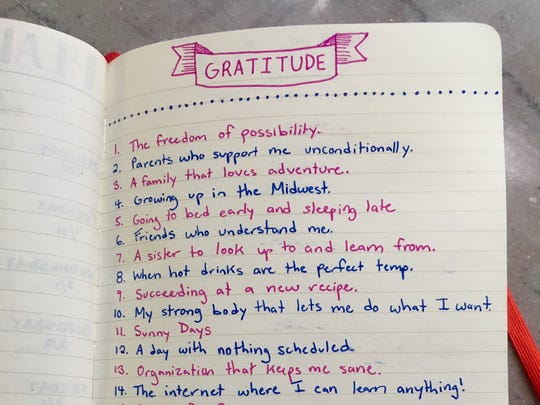 GRATITUDE
1. The freedom of possibility.
2. Parents who support me unconditionally.
3. A family that loves adventure.
4. Growing up in the Midwest.
5. Going to bed early and sleeping late
6. Friends who understand me.
7. A sister to look up to and learn from.
8. When hot drinks are the perfect temp.
9. Succeeding at a new recipe.
10. My strong body that lets me do what I want.
11. Sunny Days
12. A day with nothing scheduled.
13. Organization that keeps me sane.
14. The internet where I can learn anything!